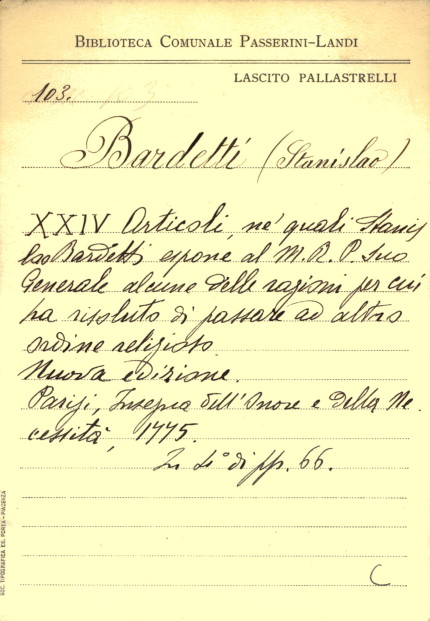 BIBLIOTECA COMUNALE PASSERINI-LANDI
LASCITO PALLASTRELLI
103.
Bardetti (Stanislao)
XXIV Articoli, ne' quali Stanis
lao Bardetti espone al M. R. P. suo
Generale alcune delle ragioni per cui
ha risoluto di passare ad altro
ordine religioso.
Nuova edizione.
Parigi, Insegna dell'Onore e della Ne
cessità, 1775.
In 4° di pp. 66.
C
SOC. TIPOGRAFICA ED. PORTA-PIACENZA